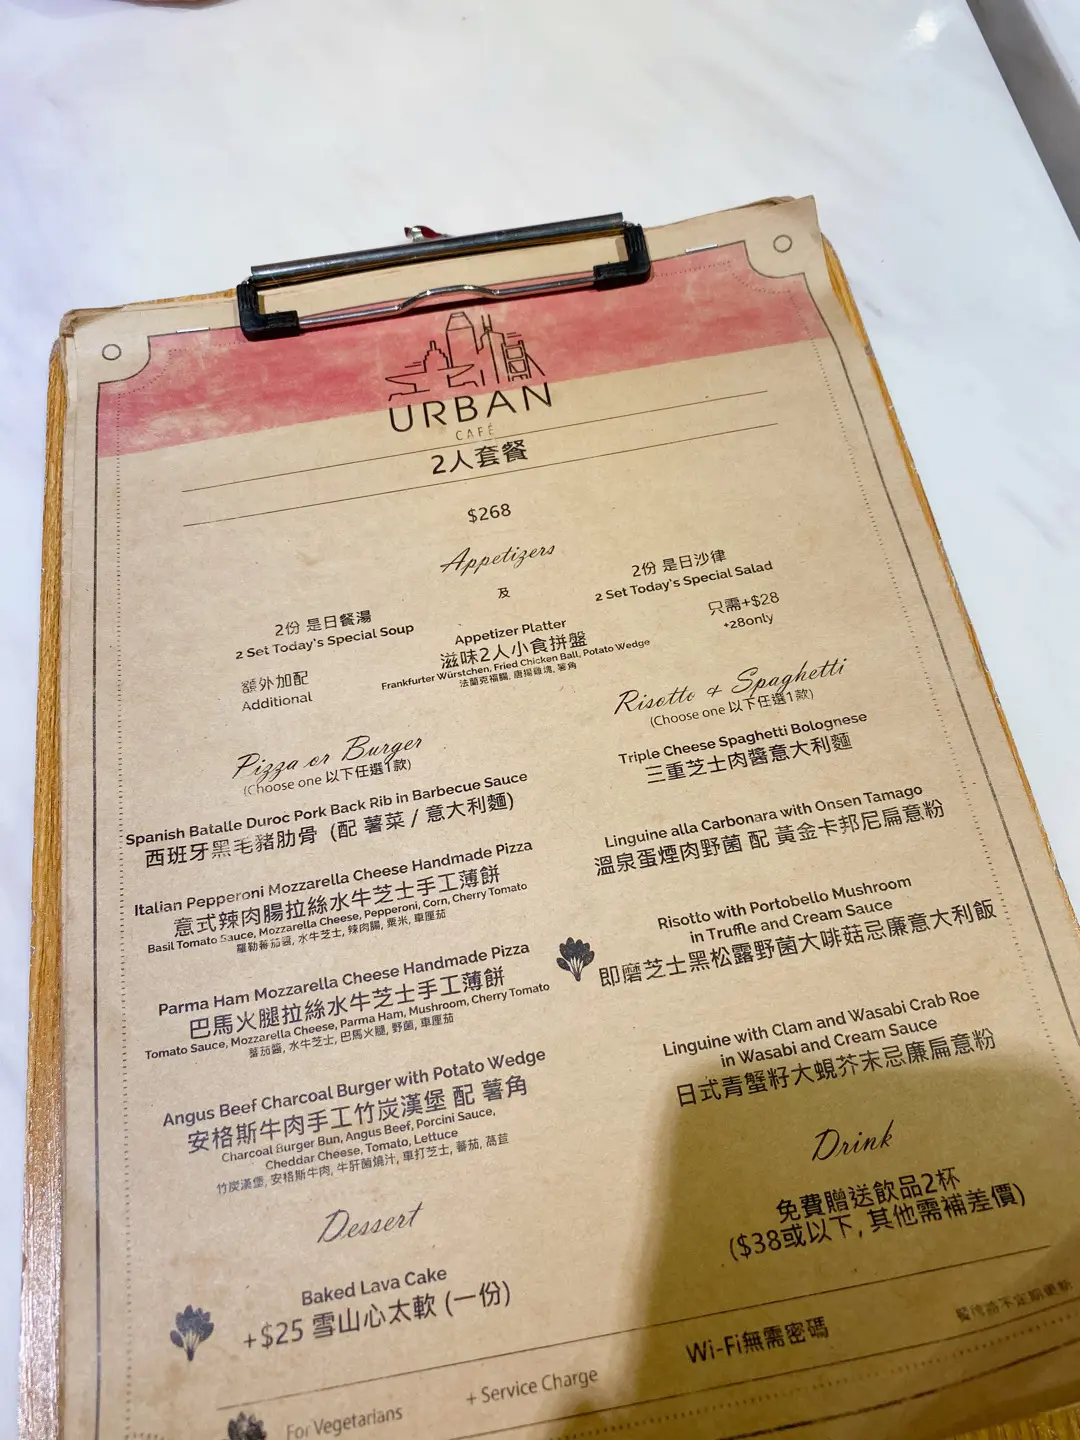 URBAN
CAFÉ
2人套餐
$268
Appetizers
2份 是日餐湯
2 Set Today's Special Soup
及
2份 是日沙律
2 Set Today's Special Salad
額外加配
Additional
Appetizer Platter
滋味2人小食拼盤
Frankfurter Würstchen, Fried Chicken Ball, Potato Wedge
法蘭克福腸, 唐揚雞塊, 薯角
只需+$28
+28only
Pizza or Burger
(Choose one 以下任選1款)
Spanish Batalle Duroc Pork Back Rib in Barbecue Sauce
西班牙黑毛豬肋骨 (配 薯菜 / 意大利麵)
Italian Pepperoni Mozzarella Cheese Handmade Pizza
意式辣肉腸拉絲水牛芝士手工薄餅
Basil Tomato Sauce, Mozzarella Cheese, Pepperoni, Corn, Cherry Tomato
羅勒蕃茄醬, 水牛芝士, 辣肉腸, 粟米, 車厘茄
Parma Ham Mozzarella Cheese Handmade Pizza
巴馬火腿拉絲水牛芝士手工薄餅
Tomato Sauce, Mozzarella Cheese, Parma Ham, Mushroom, Cherry Tomato
蕃茄醬, 水牛芝士, 巴馬火腿, 野菌, 車厘茄
Angus Beef Charcoal Burger with Potato Wedge
安格斯牛肉手工竹炭漢堡 配 薯角
Charcoal Burger Bun, Angus Beef, Porcini Sauce,
Cheddar Cheese, Tomato, Lettuce
竹炭漢堡, 安格斯牛肉, 牛肝菌燒汁, 車打芝士, 蕃茄, 萵苣
Risotto & Spaghetti
(Choose one 以下任選1款)
Triple Cheese Spaghetti Bolognese
三重芝士肉醬意大利麵
Linguine alla Carbonara with Onsen Tamago
溫泉蛋煙肉野菌 配 黃金卡邦尼扁意粉
Risotto with Portobello Mushroom
in Truffle and Cream Sauce
即磨芝士黑松露野菌大啡菇忌廉意大利飯
Linguine with Clam and Wasabi Crab Roe
in Wasabi and Cream Sauce
日式青蟹籽大蜆芥末忌廉扁意粉
Dessert
Baked Lava Cake
+$25 雪山心太軟 (一份)
Drink
免費贈送飲品2杯
($38或以下, 其他需補差價)
Wi-Fi無需密碼
For Vegetarians
+ Service Charge